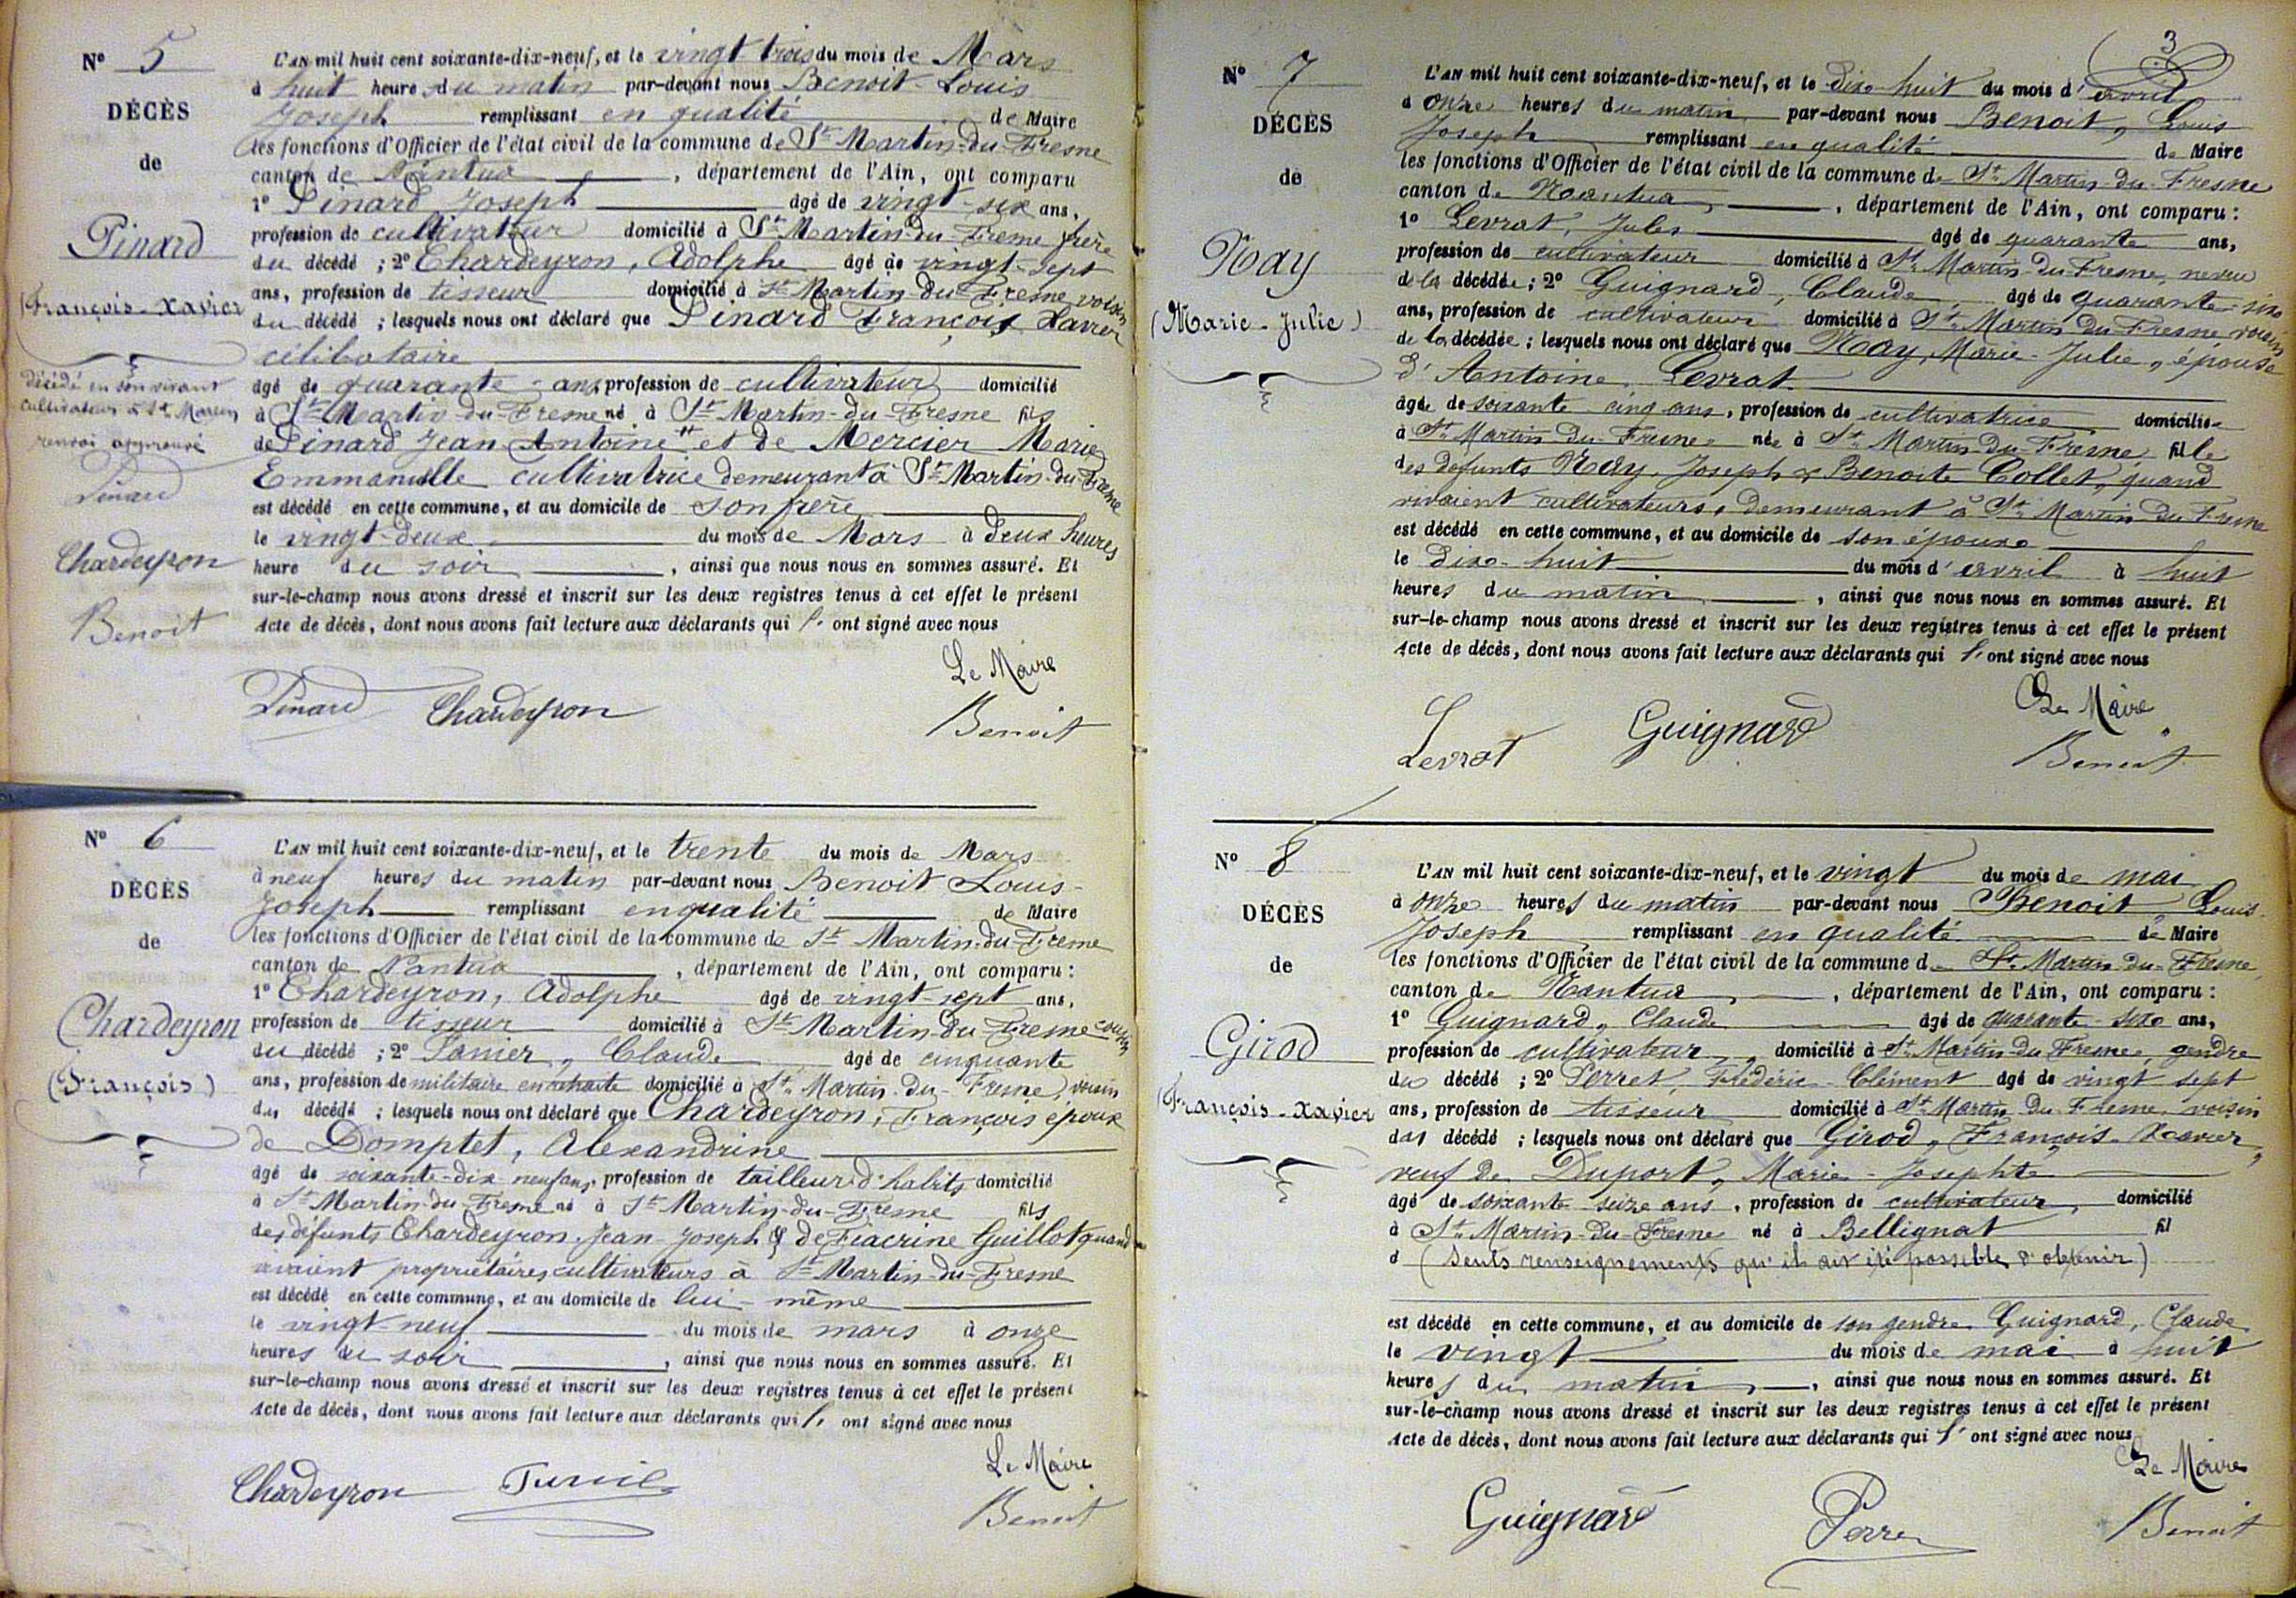 N° 5
DÉCÈS
de
Pinard
(François-Xavier
décédé en son vivant
cultivateur à St Martin
renvoi approuvé
Pinard
Chardeyron
Benoit
L'AN mil huit cent soixante-dix-neuf, et le vingt trois du mois de Mars
à huit heure du matin par-devant nous Benoit Louis
Joseph remplissant en qualité de Maire
les fonctions d'Officier de l'état civil de la commune de St Martin-du-Fresne
canton de Nantua, département de l'Ain, ont comparu
1° Pinard Joseph âgé de vingt-six ans,
profession de cultivateur domicilié à St Martin-du-Fresne frère
du décédé ; 2° Chardeyron, Adolphe âgé de vingt-sept
ans, profession de tisseur domicilié à St Martin-du-Fresne voisin
du décédé ; lesquels nous ont déclaré que Pinard François Xavier
célibataire
âgé de quarante-ans, profession de cultivateur domicilié
à St Martin-du-Fresne né à St Martin-du-Fresne fils
de Pinard Jean Antoine et de Mercier Marie
Emmanuelle cultivatrice demeurant à St Martin-du-Fresne
est décédé en cette commune, et au domicile de son frère
le vingt-deux du mois de Mars à deux heures
heure du soir, ainsi que nous nous en sommes assuré. Et
sur-le-champ nous avons dressé et inscrit sur les deux registres tenus à cet effet le présent
Acte de décès, dont nous avons fait lecture aux déclarants qui l' ont signé avec nous
Le Maire
Pinard Chardeyron Benoit
N° 6
DÉCÈS
de
Chardeyron
(François)
L'AN mil huit cent soixante-dix-neuf, et le trente du mois de Mars
à neuf heures du matin par-devant nous Benoit Louis-
Joseph remplissant en qualité de Maire
les fonctions d'Officier de l'état civil de la commune de St Martin-du-Fresne
canton de Nantua, département de l'Ain, ont comparu :
1° Chardeyron, Adolphe âgé de vingt-sept ans,
profession de tisseur domicilié à St Martin-du-Fresne cousin
du décédé ; 2° , Claude âgé de cinquante
ans, profession de militaire en retraite domicilié à St Martin-du-Fresne, voisin
du décédé ; lesquels nous ont déclaré que Chardeyron, François époux
de Domptet, Alexandrine
âgé de soixante-dix neuf ans, profession de tailleur d'habits domicilié
à St Martin-du-Fresne né à St Martin-du-Fresne fils
des défunts Chardeyron Jean-Joseph & de Fiacrine Guillot quand
vivaient propriétaires cultivateurs à St Martin-du-Fresne
est décédé en cette commune, et au domicile de lui-même
le vingt-neuf du mois de mars à onze
heures du soir, ainsi que nous nous en sommes assuré. Et
sur-le-champ nous avons dressé et inscrit sur les deux registres tenus à cet effet le présent
Acte de décès, dont nous avons fait lecture aux déclarants qui l' ont signé avec nous
Le Maire
Chardeyron Benoit
3
N° 7
DÉCÈS
de
Nay
(Marie-Julie)
L'AN mil huit cent soixante-dix-neuf, et le dix-huit du mois d'avril
à onze heures du matin par-devant nous Benoit, Louis
Joseph remplissant en qualité de Maire
les fonctions d'Officier de l'état civil de la commune de St Martin-du-Fresne
canton de Nantua, département de l'Ain, ont comparu :
1° Levrat, Jules âgé de quarante ans,
profession de cultivateur domicilié à St Martin-du-Fresne, neveu
de la décédée ; 2° Guignard, Claude, âgé de quarante-six
ans, profession de cultivateur domicilié à St Martin-du-Fresne, voisin
de la décédée ; lesquels nous ont déclaré que Nay, Marie-Julie, épouse
d'Antoine Levrat
âgée de soixante cinq ans, profession de cultivatrice domiciliée
à St Martin-du-Fresne née à St Martin-du-Fresne fille
des défunts Nay, Joseph & Benoite Collet, quand
vivaient cultivateurs, demeurant à St Martin-du-Fresne
est décédé en cette commune, et au domicile de son épouxe
le dix-huit du mois d'avril à huit
heures du matin, ainsi que nous nous en sommes assuré. Et
sur-le-champ nous avons dressé et inscrit sur les deux registres tenus à cet effet le présent
Acte de décès, dont nous avons fait lecture aux déclarants qui l' ont signé avec nous
Le Maire
Levrat Guignard Benoit
N° 8
DÉCÈS
de
Girod
(François-Xavier
L'AN mil huit cent soixante-dix-neuf, et le vingt du mois de mai
à onze heures du matin par-devant nous Benoit Louis
Joseph remplissant en qualité de Maire
les fonctions d'Officier de l'état civil de la commune de St Martin-du-Fresne
canton de Nantua, département de l'Ain, ont comparu :
1° Guignard, Claude âgé de quarante-six ans,
profession de cultivateur, domicilié à St Martin-du-Fresne, gendre
du décédé ; 2° Perret, Frédéric-Clément âgé de vingt sept
ans, profession de tisseur domicilié à St Martin-du-Fresne, voisin
du décédé ; lesquels nous ont déclaré que Girod, François-Xavier,
veuf de Duport, Marie-Josephte
âgé de soixante seize ans, profession de cultivateur, domicilié
à St Martin-du-Fresne né à Bellignat fil
d (Seuls renseignements qu'il ait été possible d'obtenir)
est décédé en cette commune, et au domicile de son gendre Guignard, Claude
le vingt du mois de mai à huit
heures du matin, ainsi que nous nous en sommes assuré. Et
sur-le-champ nous avons dressé et inscrit sur les deux registres tenus à cet effet le présent
Acte de décès, dont nous avons fait lecture aux déclarants qui l' ont signé avec nous
Le Maire
Guignard Perre Benoit